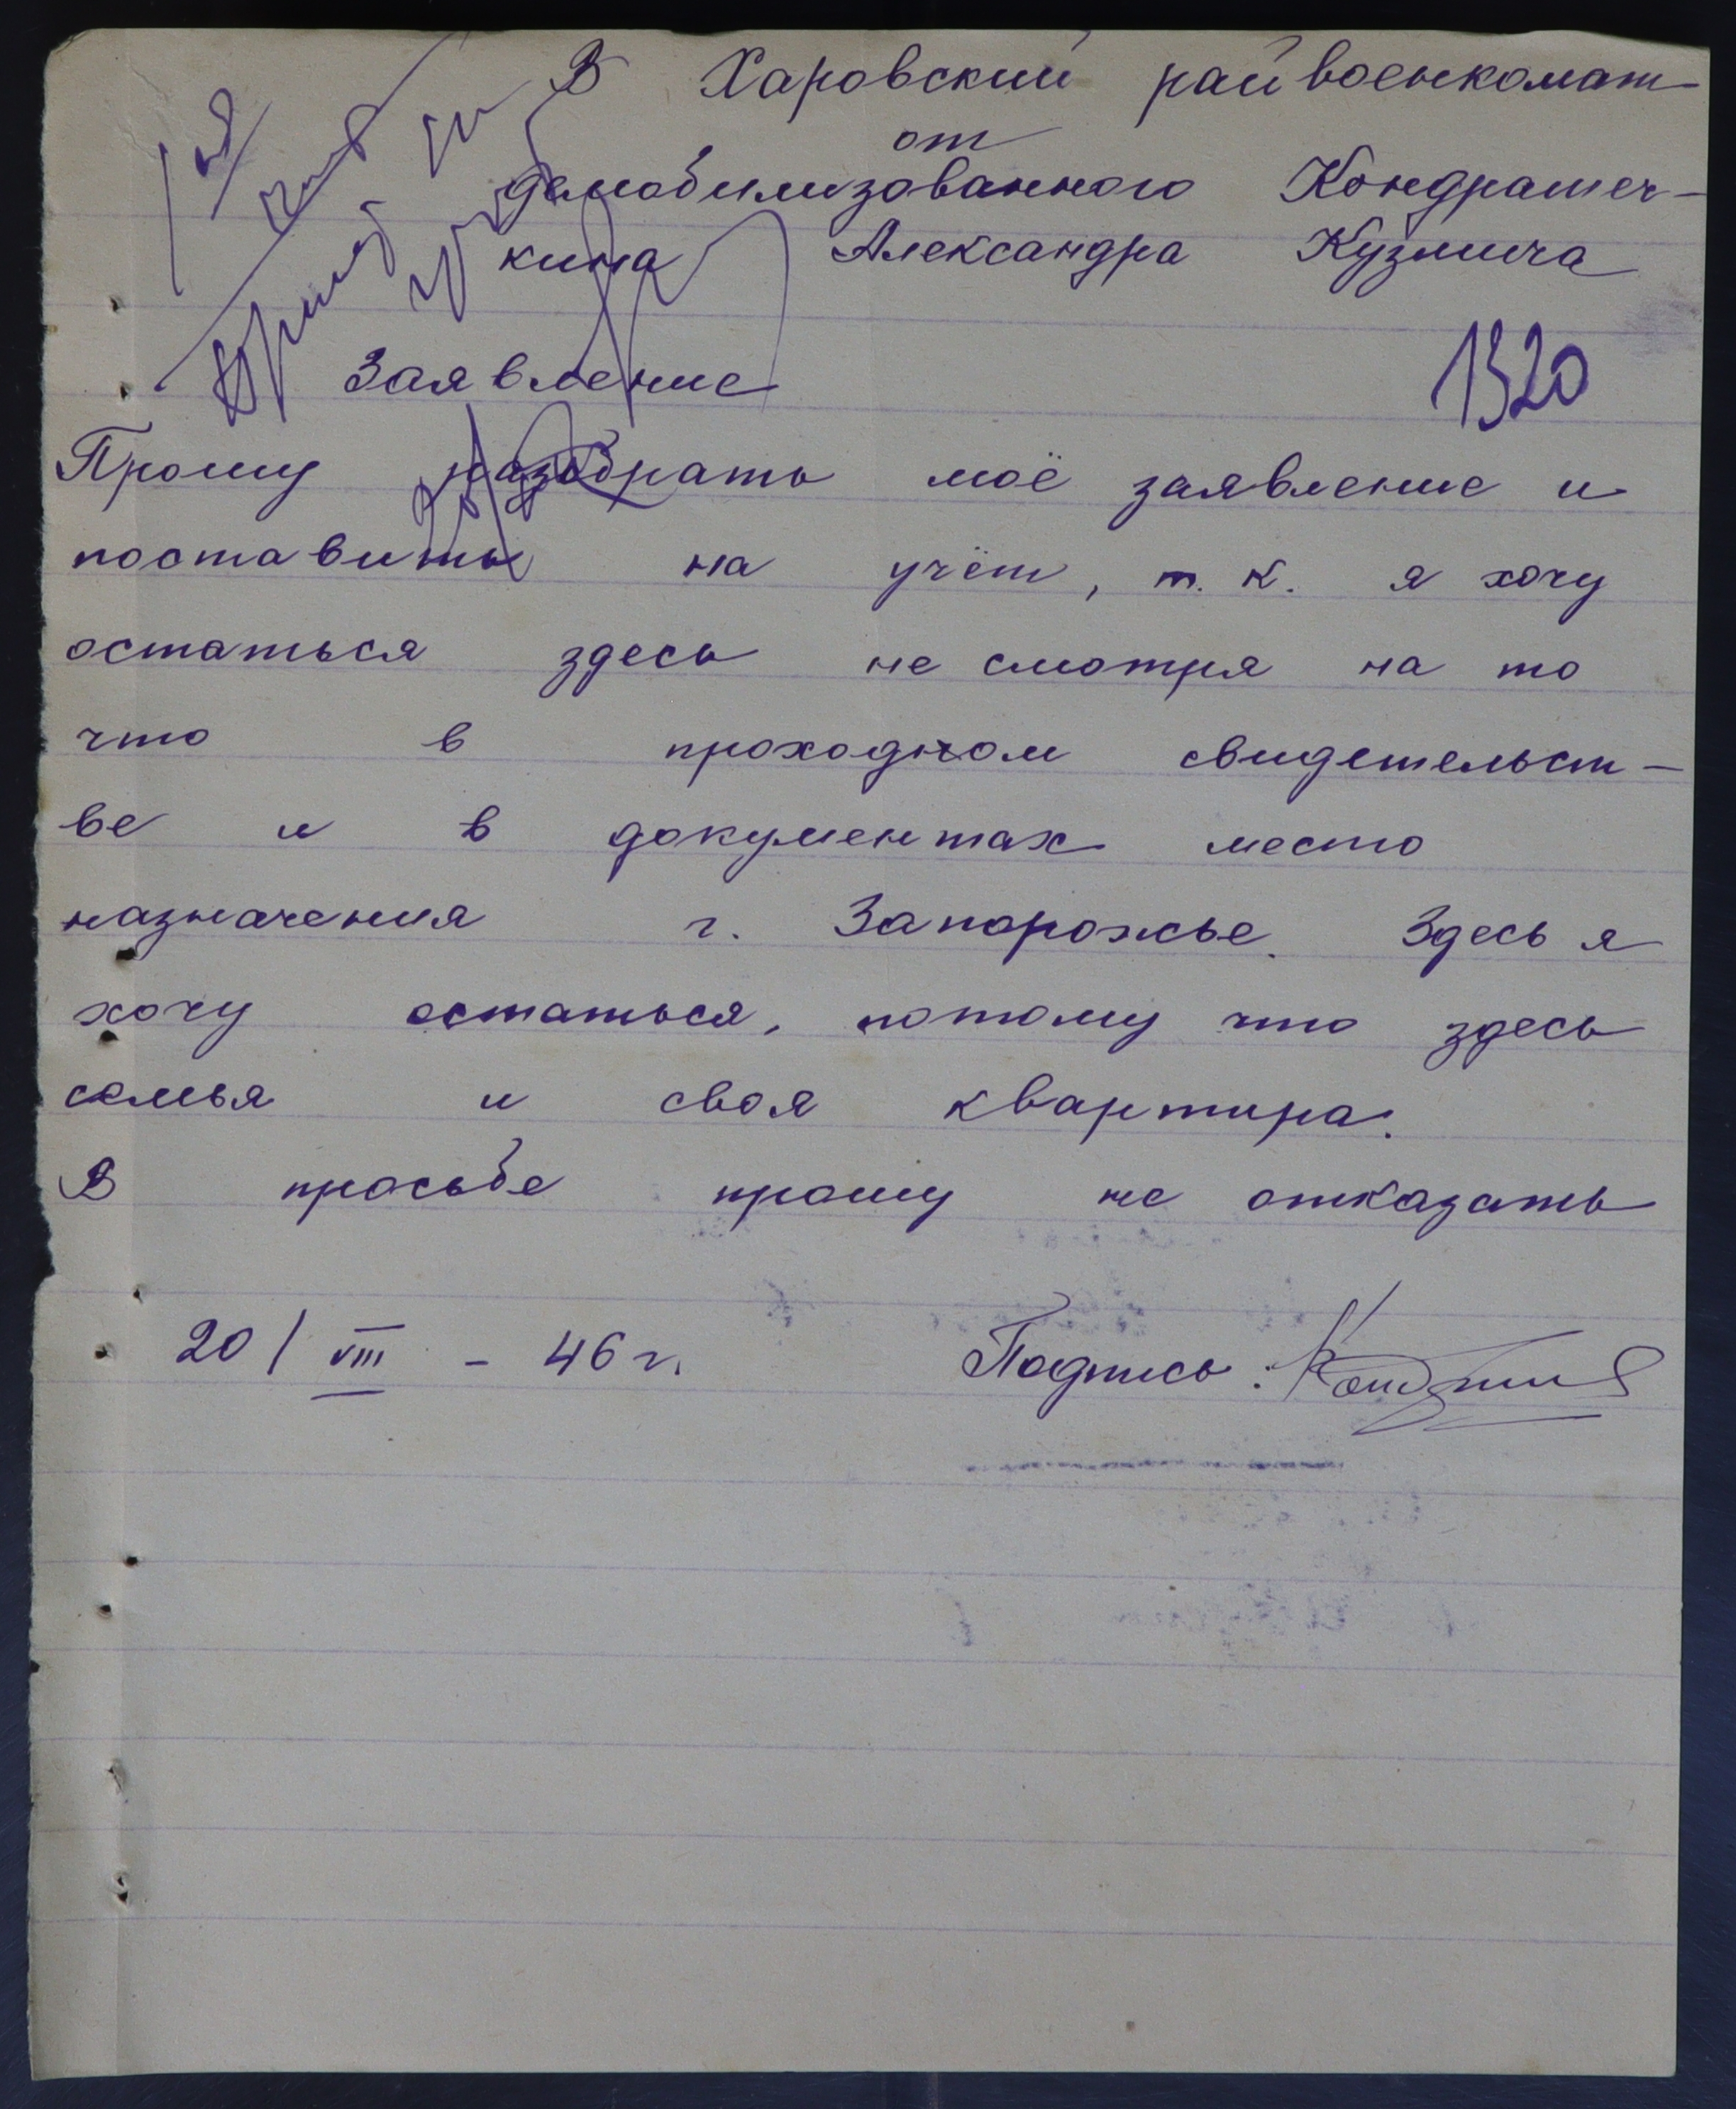 В Харовский райвоенкомат
от
демобилизованного Кондрашеч-
кина Александра Кузмича
Заявление
1320
Прошу разобрать моё заявление и
поставить на учёт, т. к. я хочу
остаться здесь не смотря на то
что в проходном свидетельст-
ве и в документах место
назначения г. Запорожье. Здесь я
хочу остаться, потому что здесь
семья и своя квартира.
В просьбе прошу не отказать
20/VIII - 46 г. Подпись: